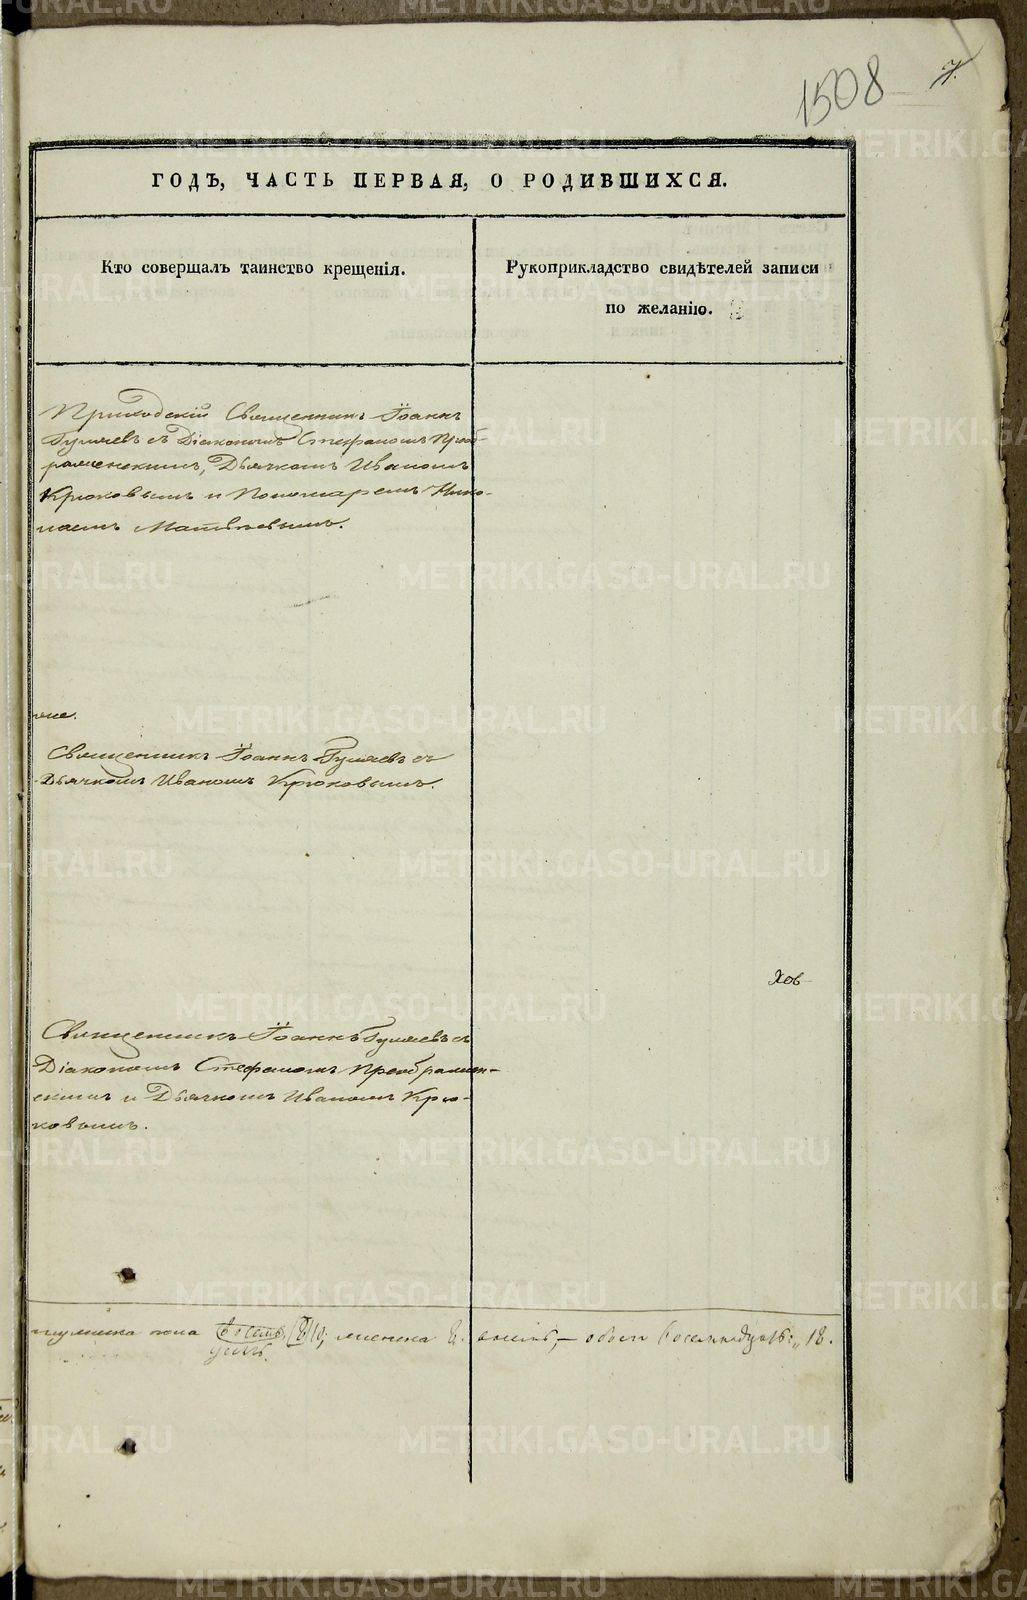 1508
7.
ГОДЪ, ЧАСТЬ ПЕРВАЯ, О РОДИВШИХСЯ.
Кто совершалъ таинство крещенія.
Рукоприкладство свидѣтелей записи
по желанію.
Приходскій Священникъ Іоаннъ
Гуляевъ съ Діакономъ Стефаномъ Преоб-
раженскимъ, Дьячкомъ Иваномъ
Крюковымъ и Пономаремъ Нико-
лаемъ Матвѣевымъ.
Священникъ Іоаннъ Гуляевъ съ
Дьячкомъ Иваномъ Крюковымъ.
Хов
Священникъ Іоаннъ Гуляевъ съ
Діакономъ Стефаномъ Преображен-
скимъ и Дьячкомъ Иваномъ Крю-
ковымъ.
пола восемь, женска обоего восемнадцать „18.
METRIKI.GASO-URAL.RU